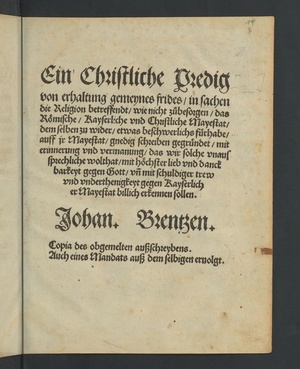 Ein Christliche Predig
von erhaltung gemeynes frides / in sachen
die Religion betreffendt / wie nicht zůbesorgen / das
Römische / Kayserliche vnd Christliche Mayestat /
dem selben zu wider / etwas beschwerlichs fürhabe /
auff jr Mayestat / gnedig schreiben gegründet / mit
erinnerung vnd vermanung / das wir solche vnauß
sprechliche wolthat / mit höchster lieb vnd danck
barkeyt gegen Gott / vñ mit schuldiger trew
vnd vnderthenigkeyt gegen Kayserlich
er Mayestat billich erkennen sollen.
Johan. Brentzen.
Copia des obgemelten außschreybens.
Auch eines Mandats auß dem selbigen eruolgt.